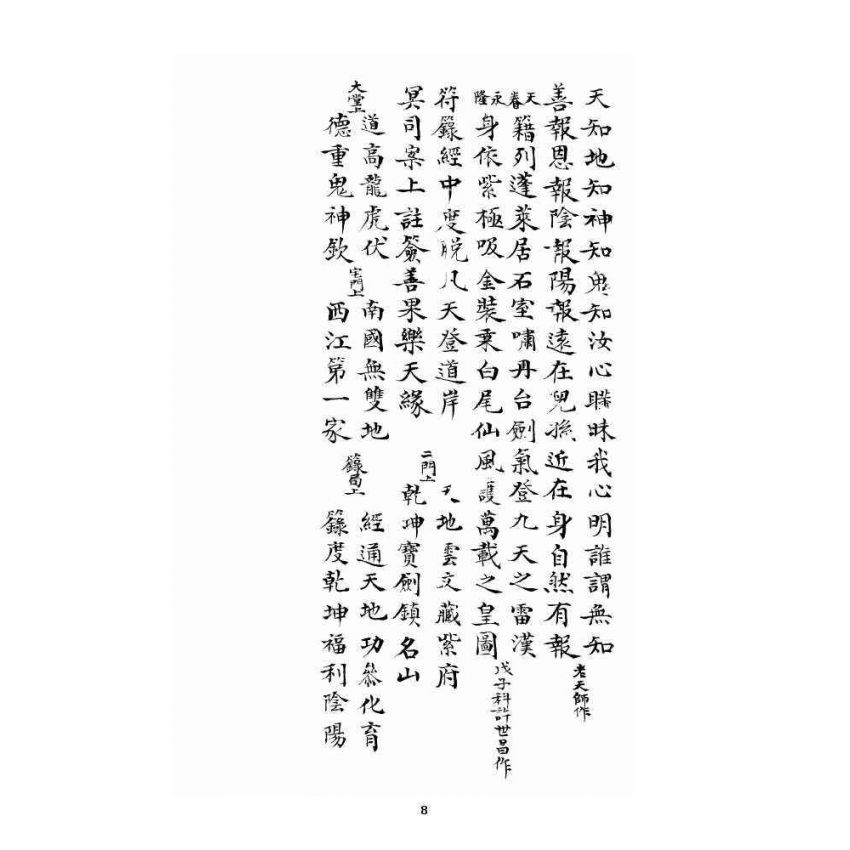 天知地知神知鬼知汝心曖昧我心明誰謂無知
善報恩報陰報陽報遠在兒孫近在身自然有報
老天師作
天眷籍列蓬萊居石室嘯丹台劍氣登九天之雷漢
永隆身依紫極吸金裝乘白尾仙風護萬載之皇圖
戊子科許世昌作
符籙經中度脫凡天登道岸
冥司案上註簽善果樂天緣
二門上
天地雲文藏紫府
乾坤寶劍鎮名山
大堂上
道高龍虎伏
德重鬼神欽
宅門上
南國無雙地
西江第一家
籙局上
經通天地功參化育
籙度乾坤福利陰陽
8